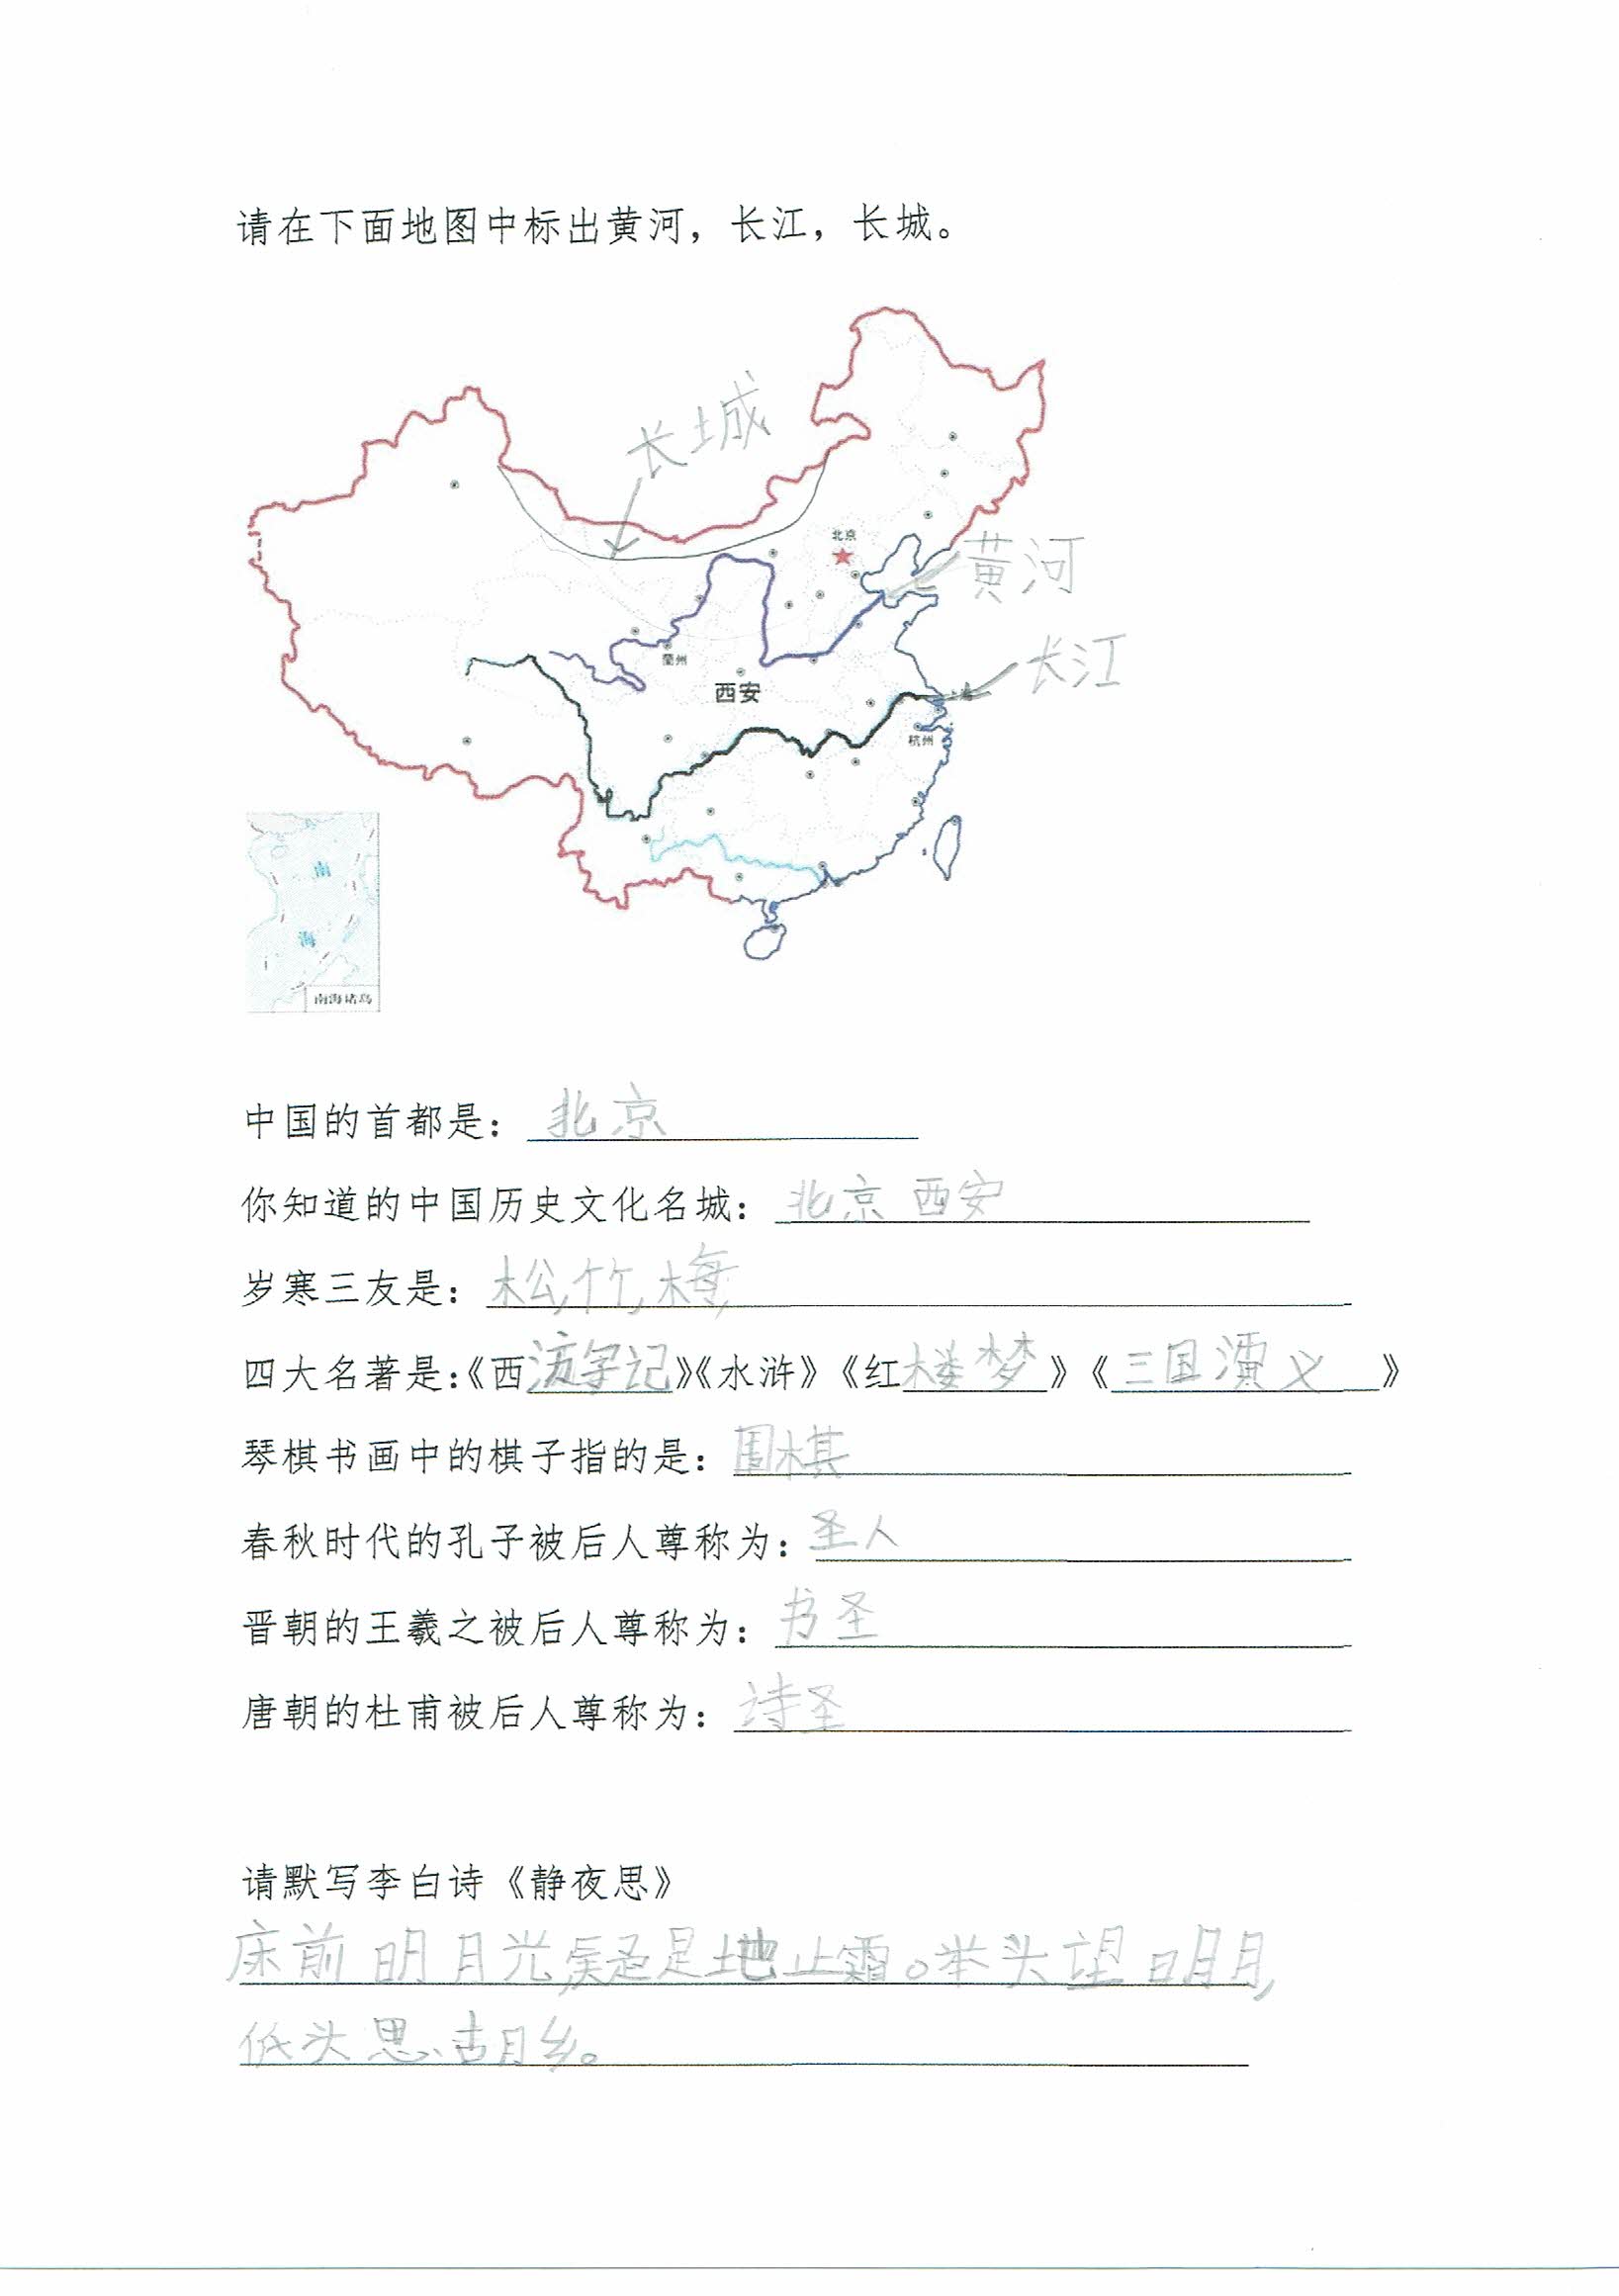 请在下面地图中标出黄河，长江，长城。
长城
北京
黄河
蘭州
长江
西安
杭州
南
海
南海诸岛
中国的首都是：北京
你知道的中国历史文化名城：北京 西安
岁寒三友是：松,竹,梅
四大名著是：《西游字记》《水浒》《红楼梦》《三国演义》
琴棋书画中的棋子指的是：围棋
春秋时代的孔子被后人尊称为：圣人
晋朝的王羲之被后人尊称为：书圣
唐朝的杜甫被后人尊称为：诗圣
请默写李白诗《静夜思》
床前明月光,疑是地上霜。举头望明月,
低头思故乡。